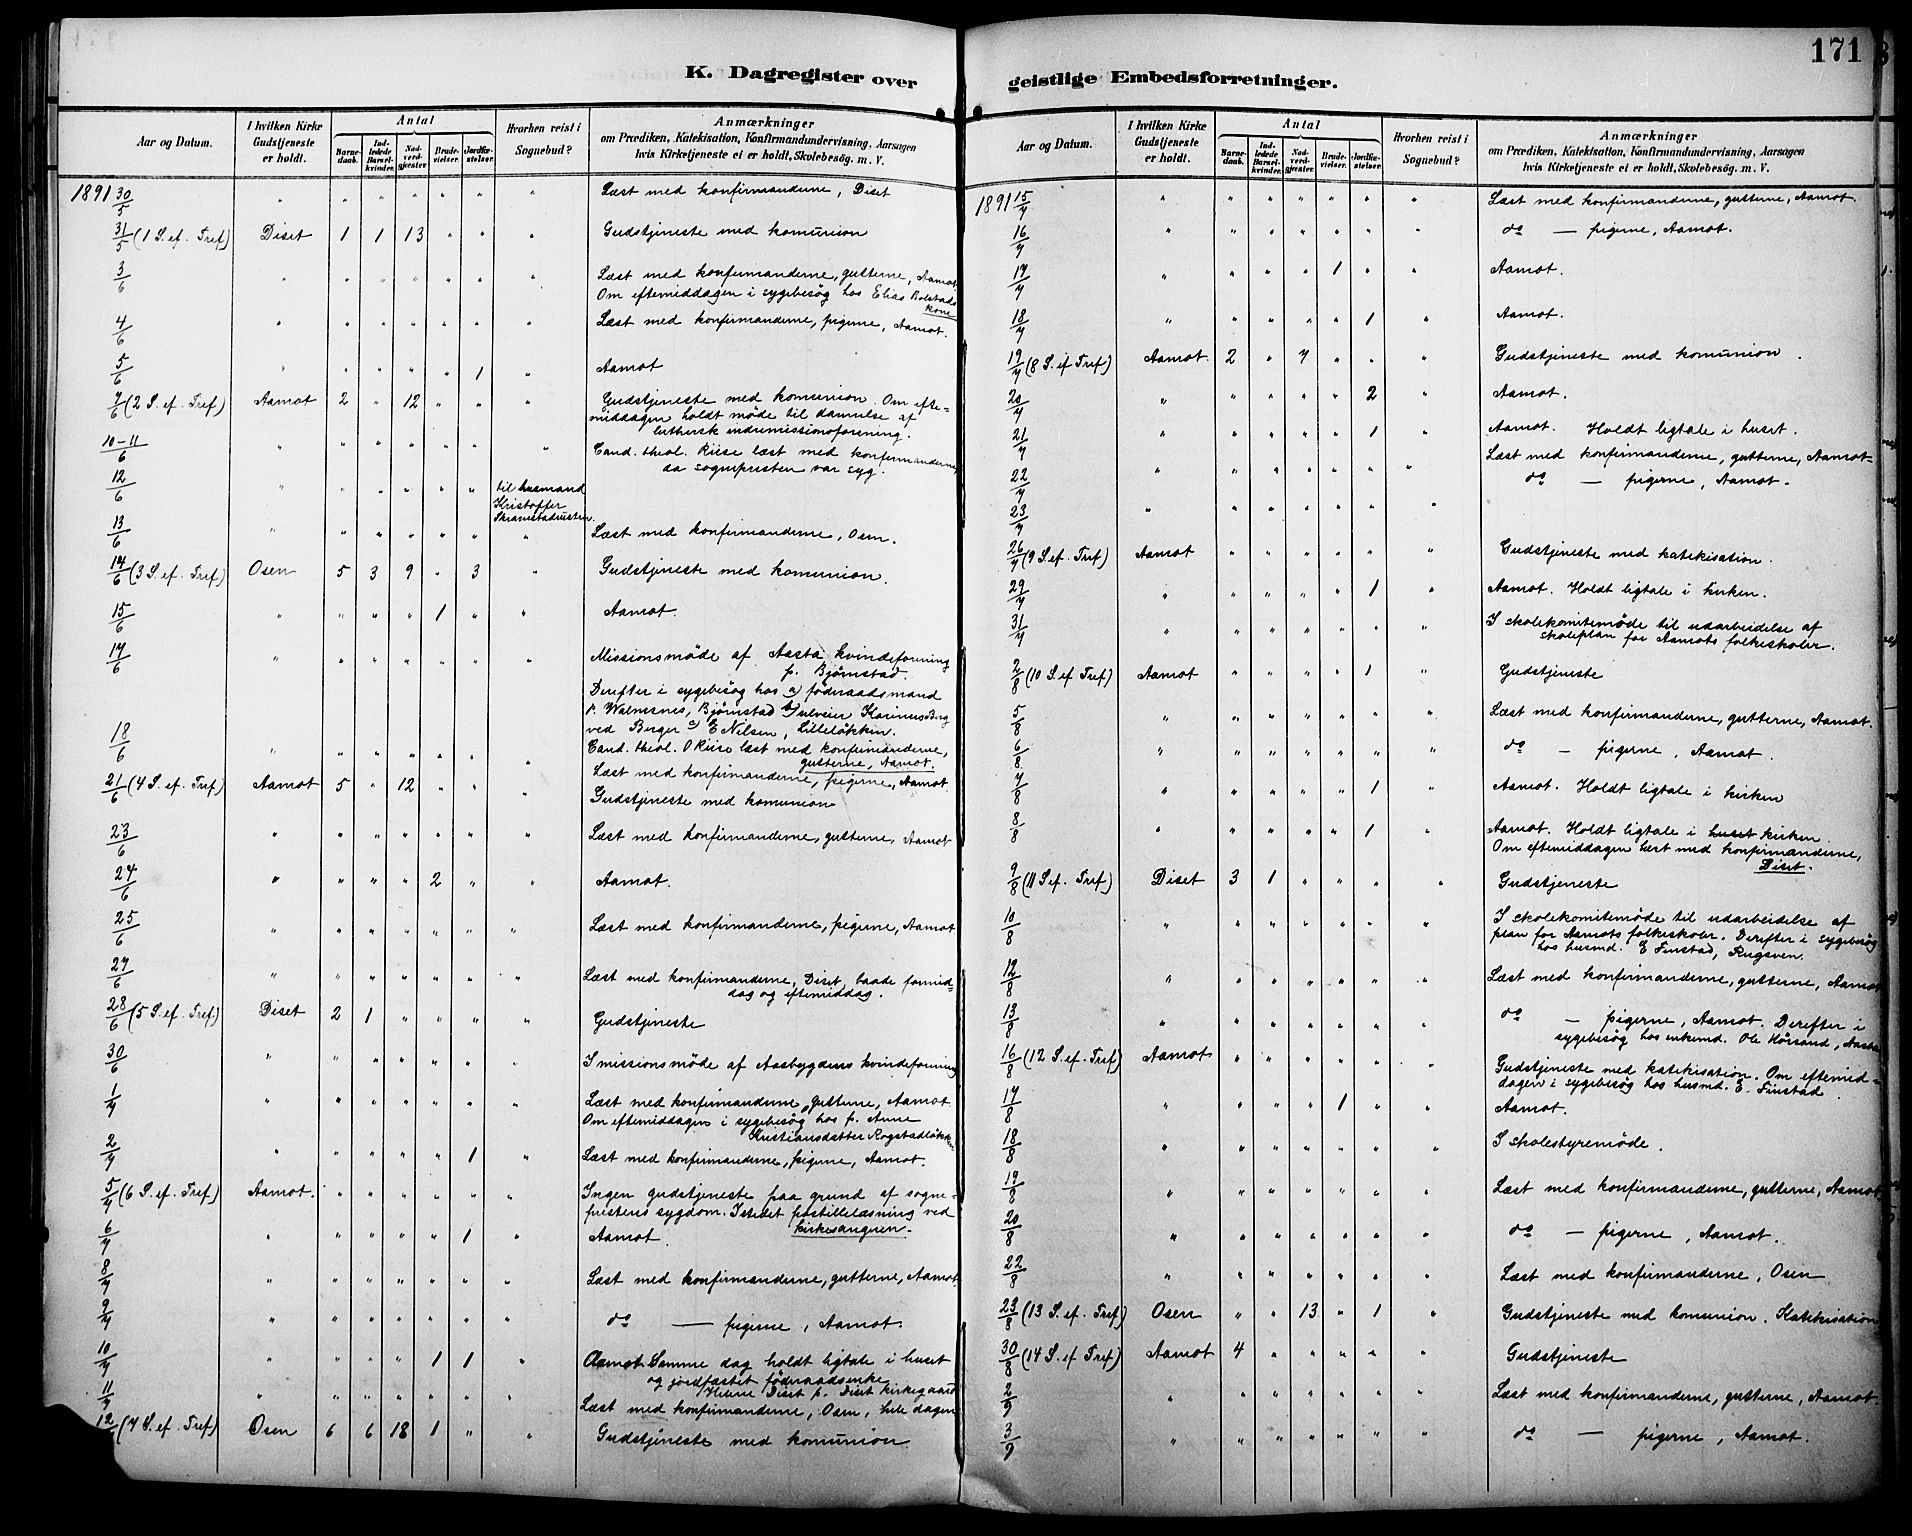 171
K. Dagregister over geistlige Embedsforretninger.
Aar og Datum. I hvilken Kirke Gudstjeneste er holdt. Antal Barnedaab. Indledede Barselkvinder. Nadverdgjester. Brudevielser. Jordfæstelser. Hvorhen reist i Sognebud? Anmærkninger om Prædiken, Katekisation, Konfirmandundervisning, Aarsagen hvis Kirketjeneste ei er holdt, Skolebesøg. m. V.
1891 30/5 " " " " " " " Læst med konfirmanderne, Diset
31/5 (1 S. ef. Tref) Diset 1 1 13 " " " Gudstjeneste med komunion
3/6 " " " " " " " Læst med konfirmanderne, gutterne, Aamot.
Om eftemiddagen i sygebesøg hos Elias Bolstads
kone
4/6 " " " " " " " Læst med konfirmanderne, pigerne, Aamot.
5/6 " " " " " 1 " Aamot
7/6 (2 S. ef. Tref) Aamot 2 " 12 " " " Gudstjeneste med komunion. Om efte=
middagen holdt møde til dannelse af
luthersk indremissionsforening.
10-11/6 " " " " " " " Cand. theol. Riise læst med konfirmanderne,
da sognepresten var syg.
12/6 " " " " " " til husmand
Kristoffer
Skramstadrusten.
13/6 " " " " " " " Læst med konfirmanderne, Osen.
14/6 (3 S. ef. Tref) Osen 5 3 9 " 3 " Gudstjeneste med komunion.
15/6 " " " " 1 " " Aamot.
17/6 " " " " " " " Missionsmøde af Aasta kvindeforening
p. Bjørnstad.
Derefter i sygebesøg hos a) føderaadsmand
P. Walmsnes, Bjørnstad b) Karinus Berg
ved Berger c) E Nilsen, Lilleløkken.
18/6 " " " " " " " Cand. theol. O Riise læst med konfirmanderne,
gutterne, Aamot.
Læst med konfirmanderne, pigerne, Aamot
21/6 (4 S. ef. Tref) Aamot 5 " 12 " " " Gudstjeneste med komunion
23/6 " " " " " " " Læst med konfirmanderne, gutterne, Aamot
24/6 " " " " 2 " " Aamot.
25/6 " " " " " " " Læst med konfirmanderne, pigerne, Aamot
27/6 " " " " " " " Læst med konfirmanderne, Diset, baade formid=
dag og eftemiddag.
28/6 (5 S. ef. Tref) Diset 2 1 " " " " Gudstjeneste
30/6 " " " " " " " I missionsmøde af Aasbygdens kvindeforening
1/7 " " " " " " " Læst med konfirmanderne, gutterne, Aamot
Om eftemiddagen i sygebesøg hos p. Anne
Kristiansdatter Rogstadløkken
2/7 " " " " " 1 " Læst med konfirmanderne, pigerne, Aamot.
5/7 (6 S. ef. Tref) Aamot. " " " " " " Ingen gudstjeneste paa grund af sogne=
prestens sygdom. Istedet postillelæsning ved
kirkesangeren.
6/7 " " " " " 1 " Aamot.
8/7 " " " " " " " Læst med konfirmanderne, gutterne, Aamot
9/7 " " " " " " " do — pigerne, Aamot.
10/7 " " " " 1 1 " Aamot. Samme dag holdt ligtale i huset
og jordfæstet føderaadsenke
Helene Diset p. Diset kirkegaard
11/7 " " " " " " " Læst med konfirmanderne, Osen, hele dagen
12 (7 S. ef. Tref) Osen 6 6 18 1 " " Gudstjeneste med komunion.
Aar og Datum. I hvilken Kirke Gudstjeneste er holdt. Antal Barnedaab. Indledede Barselkvinder. Nadverdgjester. Brudevielser. Jordfæstelser. Hvorhen reist i Sognebud? Anmærkninger om Prædiken, Katekisation, Konfirmandundervisning, Aarsagen hvis Kirketjeneste ei er holdt, Skolebesøg. m. V.
1891 15/7 " " " " " " " Læst med konfirmanderne, gutterne, Aamot.
16/7 " " " " " " " do — pigerne, Aamot.
17/7 " " " " 1 " " Aamot.
18/7 " " " " " 1 " Aamot.
19/7 (8 S. ef Tref) Aamot. 2 " 7 " " " Gudstjeneste med komunion.
20/7 " " " " " 2 " Aamot.
21/7 " " " " " 1 " Aamot. Holdt ligtale i huset.
22/7 " " " " " " " Læst med konfirmanderne, gutterne, Aamot
23/7 " " " " " " " do — pigerne, Aamot.
26/7 (9 S. ef. Tref) Aamot " " " " " " Gudstjeneste med katekisation.
29/7 " " " " " 1 " Aamot. Holdt ligtale i kirken.
31/7 " " " " " " " I skolekomitemøde til udarbeidelse af
skoleplan for Aamots folkeskoler.
2/8 (10 S. ef Tref) Aamot " " " " 1 " Gudstjeneste
5/8 " " " " " " " Læst med konfirmanderne, gutterne, Aamot.
6/8 " " " " " " " do — pigerne, Aamot.
7/8 " " " " " 1 " Aamot. Holdt ligtale i kirken
8/8 " " " " " 1 " Aamot. Holdt ligtale i huset kirken.
Om eftemiddagen læst med konfirmanderne,
Diset.
9/8 (11 S. ef. Tref) Diset 3 1 " " " " Gudstjeneste
10/8 " " " " " " " I skolekomitemøde til udarbeidelse af
plan for Aamots folkeskoler. Derefter i sygebesøg
hos husmd. E Finstad, Rugsven.
12/8 " " " " " " " Læst med konfirmanderne, gutterne, Aamot
13/8 " " " " " " " do — pigerne, Aamot. Derefter i
sygebesøg hos enkemd. Ole Hørsand, Aasta
16/8 (12 S. ef. Tref) Aamot " " " " " " Gudstjeneste med katekisation. Om eftemid=
dagen i sygebesøg hos husmd. E. Finstad
17/8 " " " " 1 " " Aamot.
18/8 " " " " " " " I skolestyremøde.
19/8 " " " " " " " Læst med konfirmanderne, gutterne, Aamot.
20/8 " " " " " " " do — pigerne, Aamot.
22/8 " " " " " " " Læst med konfirmanderne, Osen
23/8 (13 S. ef. Tref) Osen " " 13 " 1 " Gudstjeneste med komunion. Katekisation
30/8 (14 S. ef Tref) Aamot 4 " " " " " Gudstjeneste
2/9 " " " " " " " Læst med konfirmanderne, gutterne, Aamot.
3/9 " " " " " " " do — pigerne, Aamot.